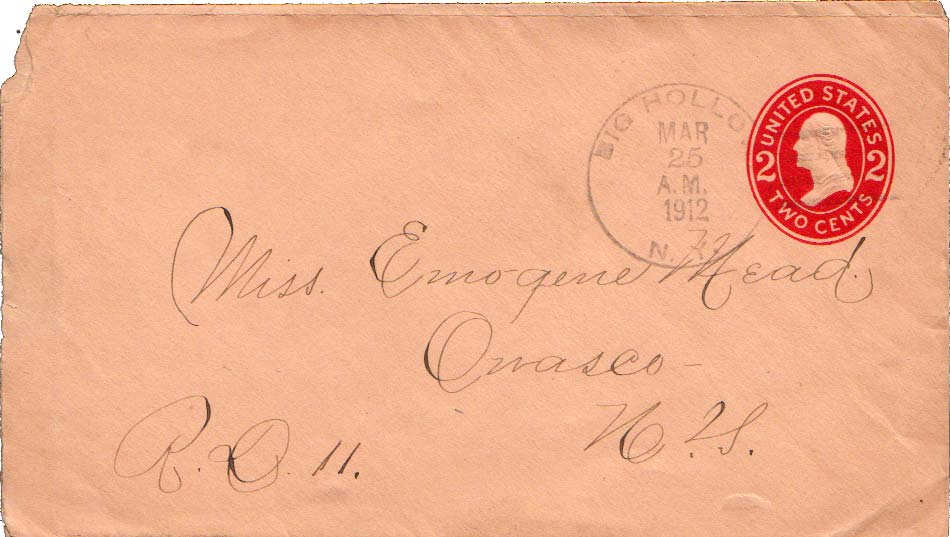 BIG HOLLO
MAR
25
A.M.
1912
N.
UNITED STATES
2 2
TWO CENTS
Miss. Emogene Mead.
Owasco-
N.Y.
R.D. 11.